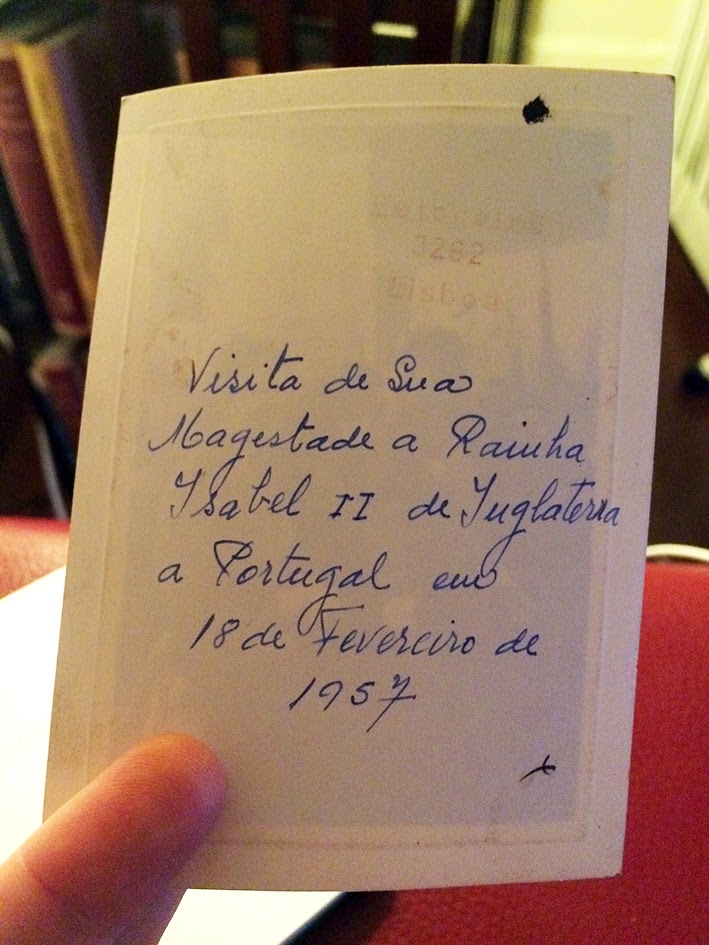 3262
Lisboa
Visita de Sua
Magestade a Rainha
Isabel II de Inglaterra
a Portugal em
18 de Fevereiro de
1957